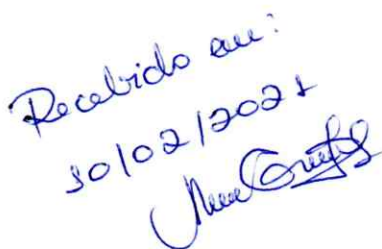 Recebido em:
10/02/2021